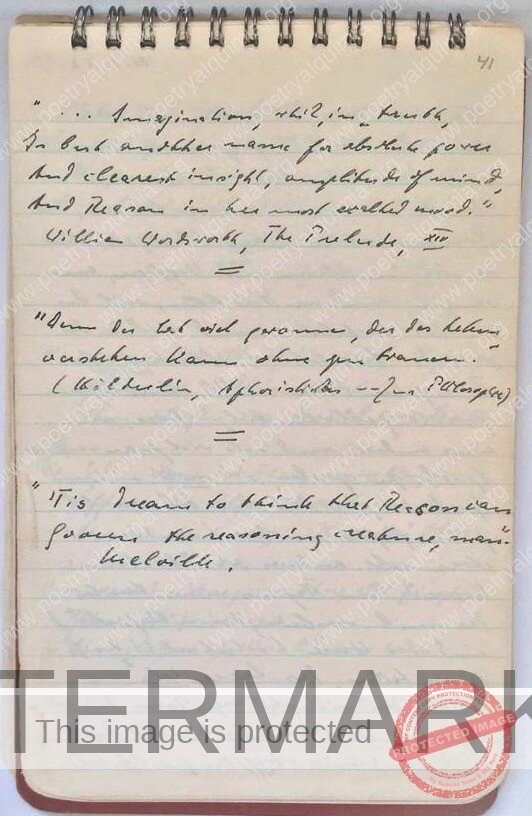 41
" ... Imagination, which, in truth,
Is but another name for absolute power
And clearest insight, amplitude of mind,
And Reason in her most exalted mood."
William Wordsworth, The Prelude, XIV
"Denn der hat viel gewonnen, der das Leben
verstehen kann ohne zu trauern."
(Hölderlin,
" 'Tis Dream to think that Reason can
Govern the reasoning creature, man".
Melville.
TERMARK
This image is protected
PROTECTED IMAGE